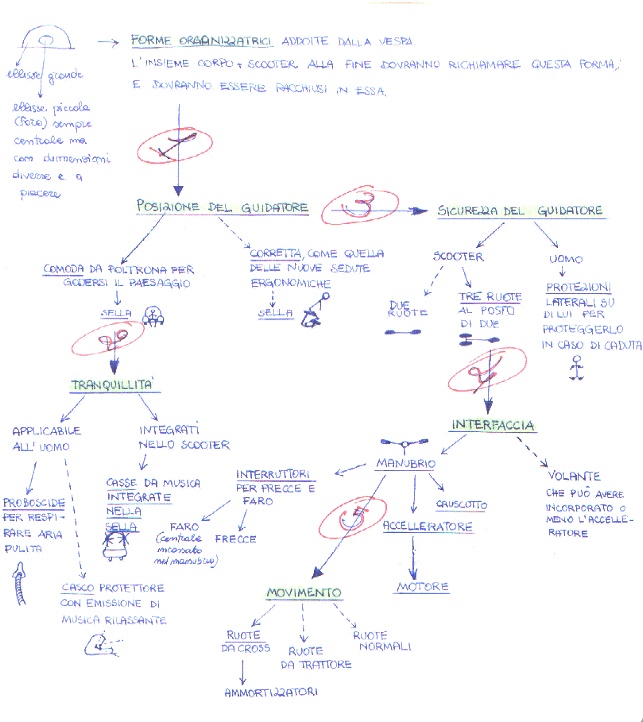 FORME ORGANIZZATRICI ADDOITE DALLA VESPA.
L'INSIEME CORPO + SCOOTER ALLA FINE DOVRANNO RICHIAMARE QUESTA FORMA,
E DOVRANNO ESSERE RACCHIUSI IN ESSA.
ellisse grande
ellisse piccola
(foro) sempre
centrale ma
con dimensioni
diverse e a
piacere
1
POSIZIONE DEL GUIDATORE
3
SICUREZZA DEL GUIDATORE
COMODA DA POLTRONA PER
GODERSI IL PAESAGGIO
SELLA
CORRETTA, COME QUELLA
DELLE NUOVE SEDUTE
ERGONOMICHE
SELLA
SCOOTER
DUE
RUOTE
TRE RUOTE
AL POSTO
DI DUE
UOMO
PROTEZIONI
LATERALI SU
DI LUI PER
PROTEGGERLO
IN CASO DI CADUTA
2
TRANQUILLITA'
APPLICABILE
ALL'UOMO
INTEGRATI
NELLO SCOOTER
PROBOSCIDE
PER RESPI-
RARE ARIA
PULITA
CASSE DA MUSICA
INTEGRATE
NELLA
SELLA
CASCO PROTETTORE
CON EMISSIONE DI
MUSICA RILASSANTE
4
INTERFACCIA
MANUBRIO
INTERRUTTORI
PER FRECCE E
FARO
FARO
(centrale
incassato
nel manubrio)
FRECCE
CRUSCOTTO
ACCELLERATORE
MOTORE
VOLANTE
CHE PUÒ AVERE
INCORPORATO O
MENO L'ACCELLE-
RATORE
5
MOVIMENTO
RUOTE
DA CROSS
RUOTE
DA TRATTORE
RUOTE
NORMALI
AMMORTIZZATORI